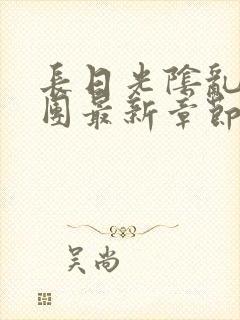 長日光陰亂
團最新章節
吴尚